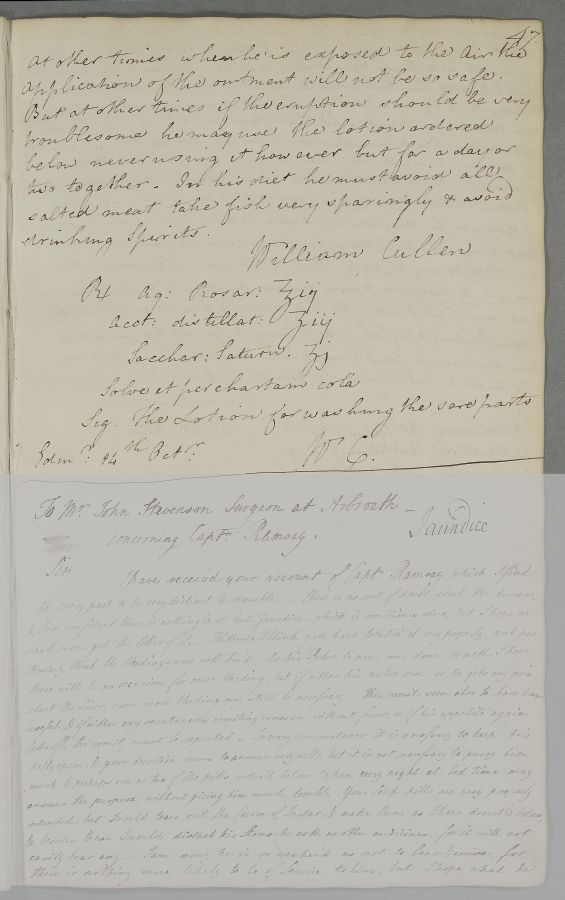 47
at other times when he is exposed to the Air the
application of the ointment will not be so safe.
But at other times if the eruption should be very
troublesome he may use the lotion ordered
below never using it however but for a day or
two together. In his diet he must avoid all
salted meat take fish very sparingly & avoid
drinking Spirits.
William Cullen
Rx Aq: Rosar: ℥ij
Acet: distillat: ℥iij
Sacchar: Saturn. ʒj
Solve et per chartam cola
Sig: The Lotion for washing the sore parts
Edinr: 14th Octr.
W C.
To Mr. John Stevenson Surgeon at Arbroath
concerning Captn Ramsay.
Jaundice
Sir
I have received your account of Captn Ramsay which I find
in every part to be very distinct & sensible. There is no sort of doubt about the disease,
& I am confident there is nothing in it but Jaundice, which is sometimes slow, but I hope we
shall soon get the better of it. Hitherto I think you have treated it very properly, and par
ticularly think the bleedings were well tim'd. As his Pulse is now come down so well, I hope
there will be no occasion for more bleeding, but if either his pulse rise or he gets any pain
about the Liver, some more bleeding may still be necessary. The vomits seem also to have been
useful, & if either any spontaneous vomiting comes on without fever, or if his appetite again
falls off, the vomit must be repeated. In every circumstance it is necessary to keep his
belly open, & your direction seems to answer very well, but it is not necessary to purge him
much & perhaps one or two of the pills order'd below taken every night at bed time may
answer the purpose without giving him much trouble. Your Soap pills are very properly
intended, but I would leave out the Cream of Tartar, & make them as I have directed below,
& besides these I would disturb his Stomach with no other medicines, for it will not
easily bear any. I am sorry he is so weaken'd as not to bear exercise, for
there is nothing more likely to be of Service to him; but I hope what he